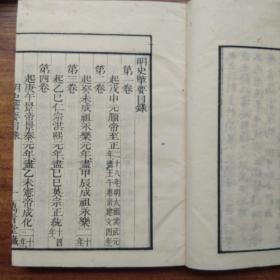 明史擥要目錄
第一卷
起戊申元順帝至正二十八年明太祖洪武元年盡壬午惠帝建文四年
第二卷
起癸未成祖永樂元年盡甲辰成祖永樂二十二年
第三卷
起乙巳仁宗洪熙元年盡己巳英宗正統十四年
第四卷
起庚午景帝景泰元年盡乙未憲帝成化十一年
明史擥要目錄